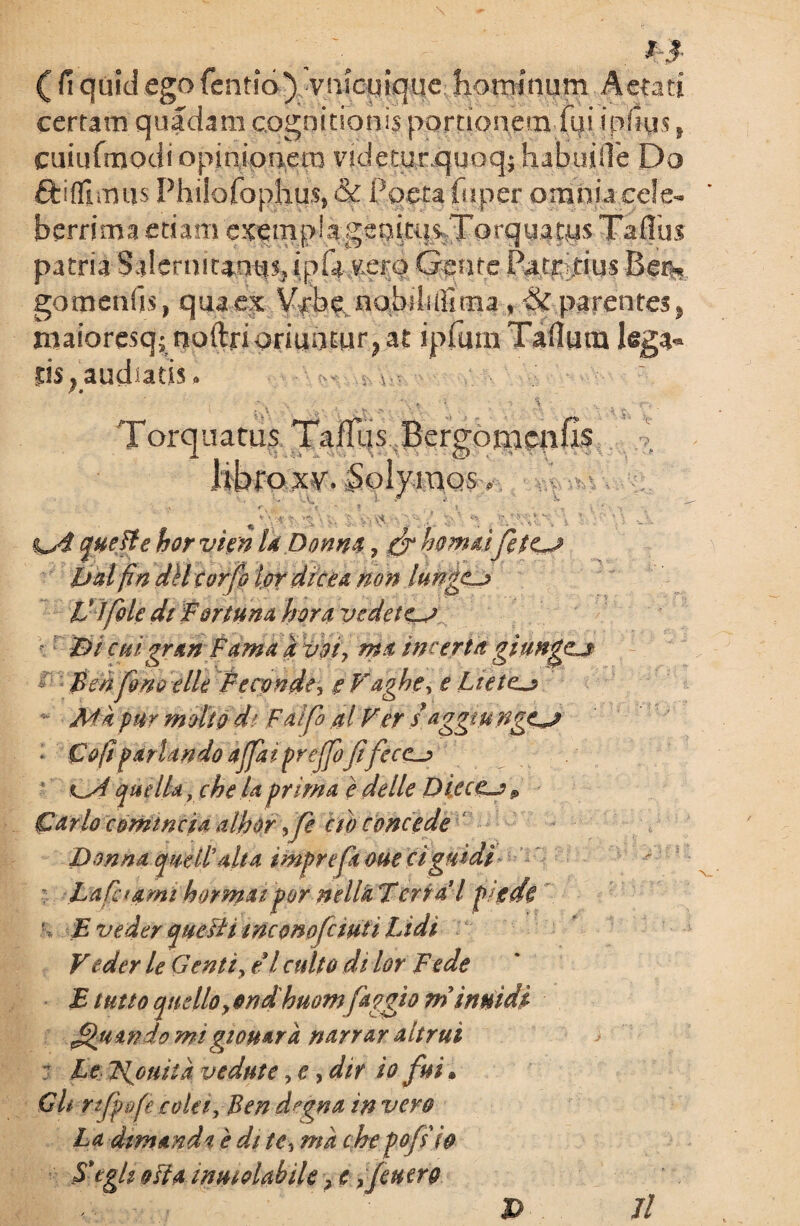 ( ſi quid ego ſentio) vnicuique hominum Aetati
certam quâdam cognitionis portionem ſui ipſius,
cuiuſmodi opinionem videtur quoq; habuiſſe Do
ctiſſimus Philoſophus, & Poeta ſuper omnia cele-
berrima etiam exempla genitus Torquatus Taſſus
patria Salernitanus, ipſa vero Gente Patritius Ber-
gomenſis, qua ex Vrbe nobiliſſima, & parentes,
maioresq; noſtri oriuntur, at ipſum Taſſum lega-
tis, audiatis.
Torquatus Taſſus Bergomenſis
libro xv. Solymos.
A queſte hor vien la Donna, & homai ſete
Dal fin del corſo lor dicea non lunge
L'Iſole di Fortuna hora vedete
Di cui gran Fama à voi, ma incerta giunge
Ben ſono elle Feconde, e Vaghe, e Liete
Mà pur molto di Falſo al Ver s'aggiunge
Coſi parlando aſſai preſſo ſi fece
A quella, che la prima è delle Diece,
Carlo comincia alhor, ſe ciò concede
Donna quell'alta impreſa oue ci guidi
Laſciami hormai por nella Terra'l piede
E veder queſti inconoſciuti Lidi
Veder le Genti, e'l culto di lor Fede
E tutto quello, ond'huom ſaggio m'inuidi
Quando mi giouarà narrar altrui
Le Nouità vedute, e, dir io fui.
Gli riſpoſe colei, Ben degna in vero
La dimanda è di te, mà che poſs'io
S'egli oſta inuiolabile, e, ſeuero
D Il